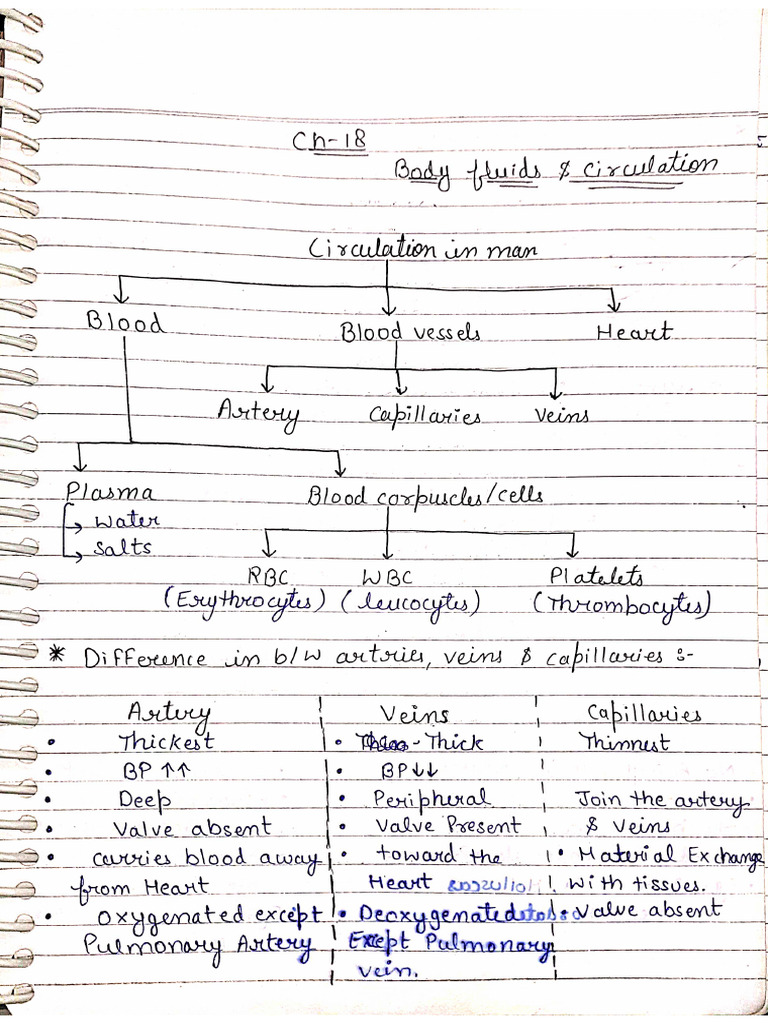 Ch-18
Body fluids & circulation
Circulation in man
Blood Blood vessels Heart
Artery Capillaries Veins
Plasma Blood corpuscles/cells
→ Water
→ Salts
RBC WBC Platelets
(Erythrocytes) (leucocytes) (Thrombocytes)
* Difference in b/w artries, veins & capillaries :-
Artery Veins Capillaries
• Thickest • Thick Thinnest
• BP ↑↑ • BP ↓↓
• Deep • Peripheral Join the artery
• Valve absent • Valve Present & Veins
• carries blood away • toward the • Material Exchange
from Heart Heart with tissues.
• Oxygenated except • Deoxygenated • Valve absent
Pulmonary Artery Except Pulmonary
vein.